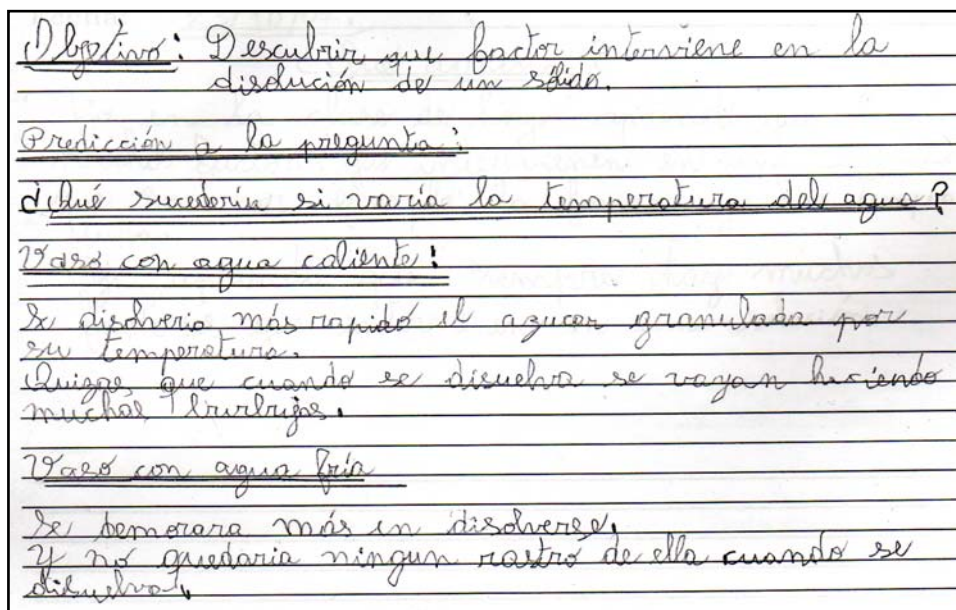 Objetivo: Descubrir que factor interviene en la
disolución de un sólido.
Predicción a la pregunta:
¿Qué sucederia si varía la temperatura del agua?
Vaso con agua caliente:
Se disolveria más rapido el azucar granulada por
su temperatura.
Quizas que cuando se disuelva se vayan haciendo
muchas burbujas.
Vaso con agua fría
Se demorara más en disolverse.
Y no quedaria ningun rastro de ella cuando se
disuelva.